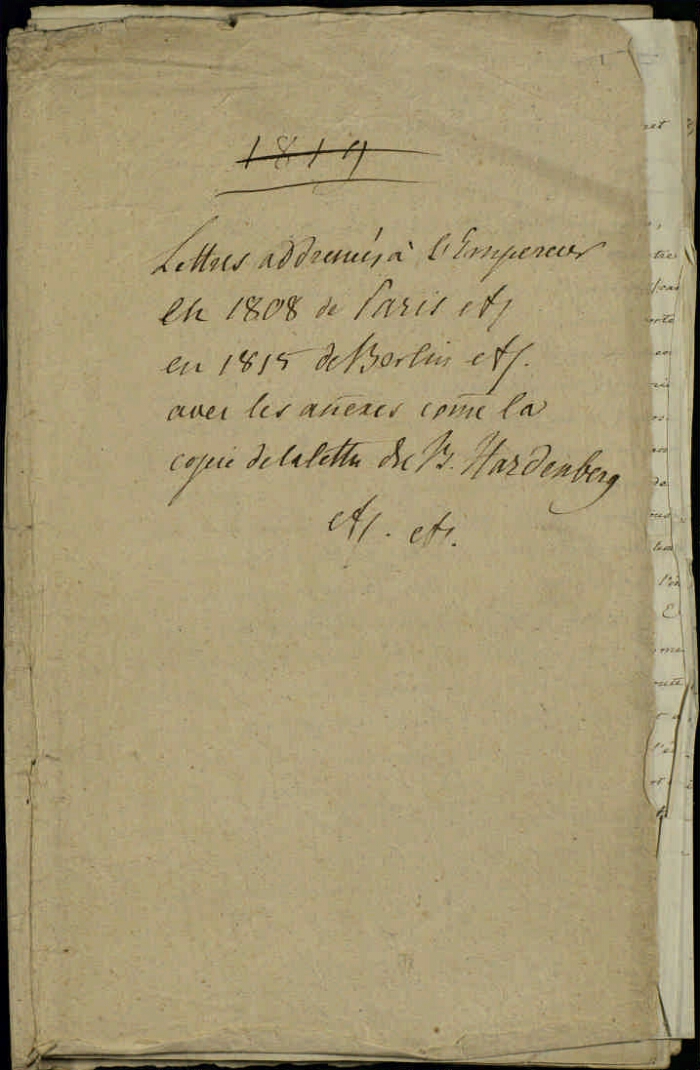 1819
Lettres addressés à l'Empereur
en 1808 de Paris etc
en 1815 de Berlin etc.
avec les añexes com̃e la
copie de la lettre du B. Hardenberg
etc. etc.